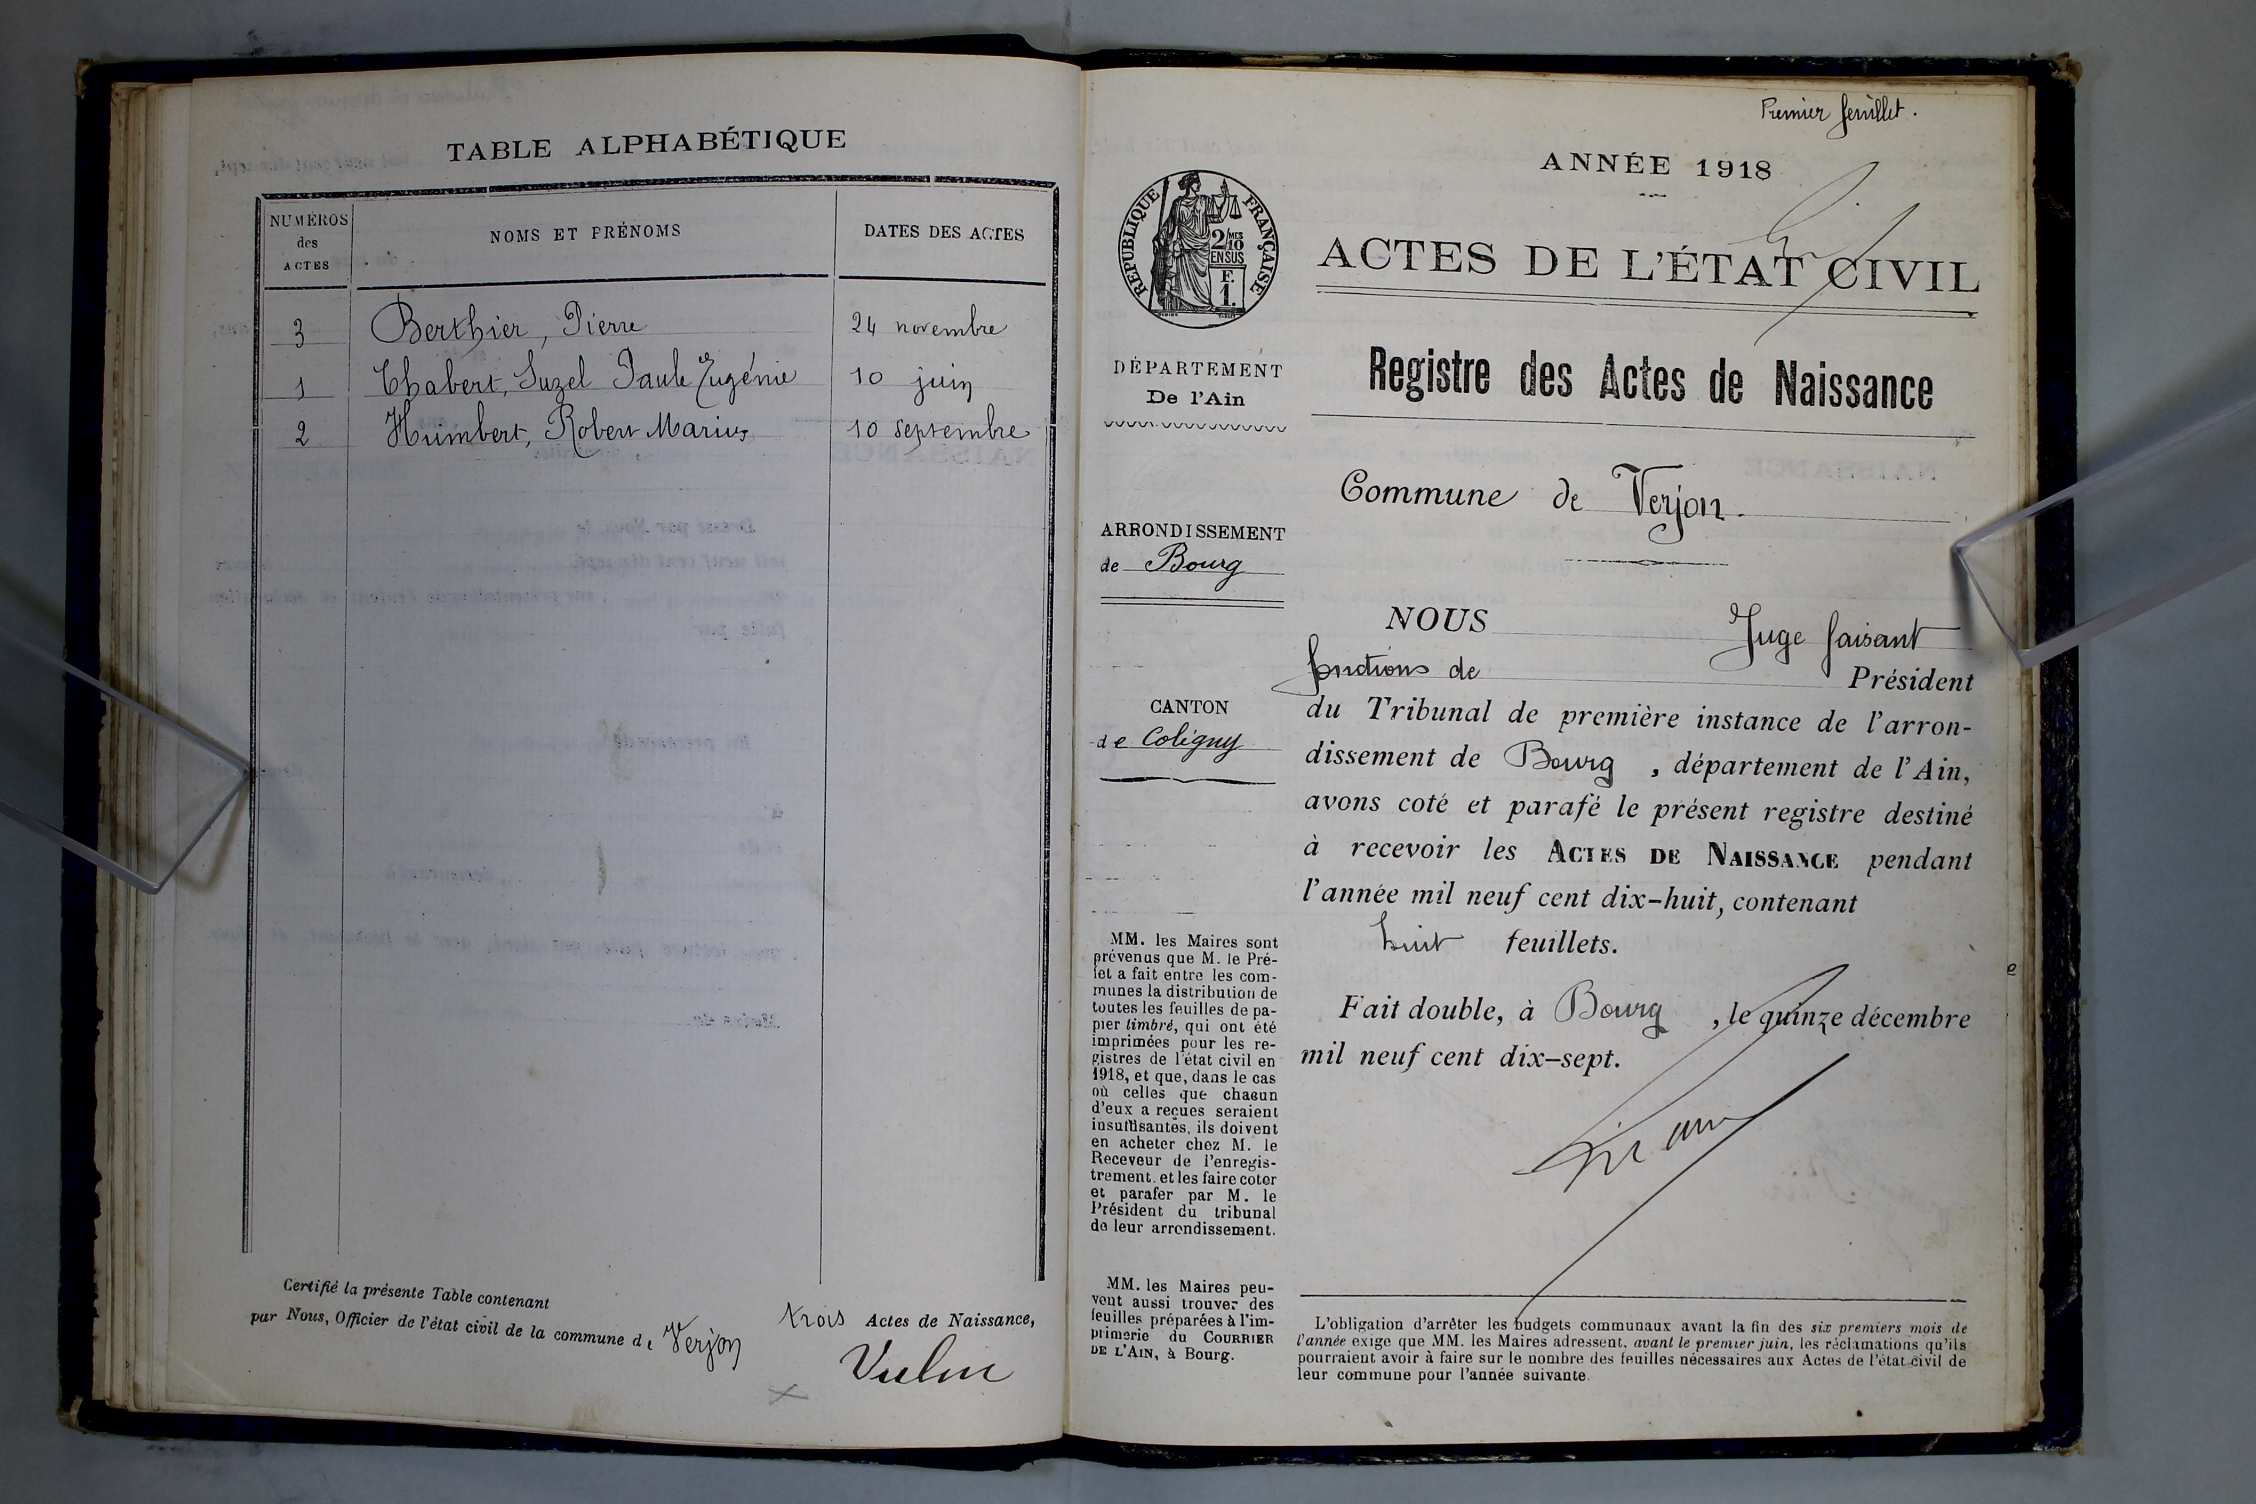 TABLE ALPHABÉTIQUE
NUMÉROS
des
ACTES
NOMS ET PRÉNOMS
DATES DES ACTES
3 Berthier, Pierre 24 novembre
1 Chabert, Suzel Paule Eugénie 10 juin
2 Humbert, Robert Marius 10 septembre
Certifié la présente Table contenant trois Actes de Naissance,
par Nous, Officier de l'état civil de la commune de Verjon
Premier feuillet.
ANNÉE 1918
RÉPUBLIQUE FRANÇAISE
2/10 MES
EN SUS
F.
1.
ACTES DE L'ÉTAT CIVIL
Registre des Actes de Naissance
DÉPARTEMENT
De l'Ain
Commune de Verjon.
ARRONDISSEMENT
de Bourg
CANTON
de Coligny
NOUS Juge faisant
fonctions de Président
du Tribunal de première instance de l'arron-
dissement de Bourg, département de l'Ain,
avons coté et parafé le présent registre destiné
à recevoir les ACTES DE NAISSANCE pendant
l'année mil neuf cent dix-huit, contenant
huit feuillets.
Fait double, à Bourg, le quinze décembre
mil neuf cent dix-sept.
MM. les Maires sont
prévenus que M. le Pré-
fet a fait entre les com-
munes la distribution de
toutes les feuilles de pa-
pier timbré, qui ont été
imprimées pour les re-
gistres de l'état civil en
1918, et que, dans le cas
où celles que chacun
d'eux a reçues seraient
insuffisantes, ils doivent
en acheter chez M. le
Receveur de l'enregis-
trement. et les faire coter
et parafer par M. le
Président du tribunal
de leur arrondissement.
MM. les Maires peu-
vent aussi trouver des
feuilles préparées à l'im-
primerie du COURRIER
DE L'AIN, à Bourg.
L'obligation d'arrêter les budgets communaux avant la fin des six premiers mois de
l'année exige que MM. les Maires adressent, avant le premier juin, les réclamations qu'ils
pourraient avoir à faire sur le nombre des feuilles nécessaires aux Actes de l'état civil de
leur commune pour l'année suivante.